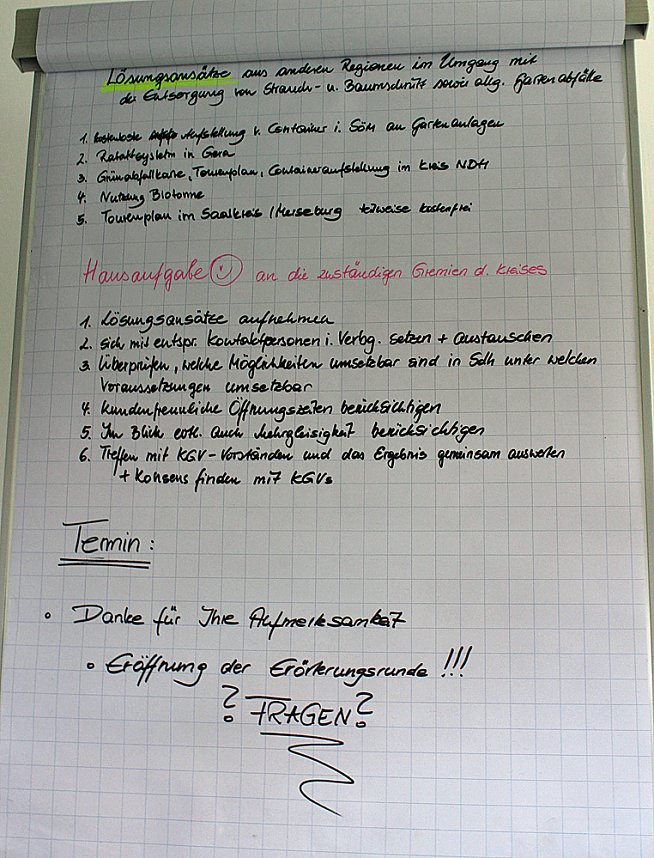 Lösungsansätze aus anderen Regionen im Umgang mit
der Entsorgung von Strauch- u. Baumschnitt sowie allg. Gartenabfälle
1. kostenlose Aufstellung v. Container i. Söm an Gartenanlagen
2. Rabattsystem in Gera
3. Grünabfallkarte, Tourenplan, Containeraufstellung im Kreis NDH
4. Nutzung Biotonne
5. Tourenplan im Saalkreis / Merseburg teilweise kostenfrei
Hausaufgabe an die zuständigen Gremien d. Kreises
1. Lösungsansätze aufnehmen
2. sich mit entspr. Kontaktpersonen i. Verbg. setzen + austauschen
3. Überprüfen, welche Möglichkeiten umsetzbar sind in Sdh unter welchen
Voraussetzungen umsetzbar
4. Kundenfreundliche Öffnungszeiten berücksichtigen
5. Im Blick evtl. auch Mehrgleisigkeit berücksichtigen
6. Treffen mit KGV-Vorständen und das Ergebnis gemeinsam auswerten
+ Konsens finden mit KGVs
Termin:
• Danke für Ihre Aufmerksamkeit
• Eröffnung der Erörterungsrunde !!!
? FRAGEN ?